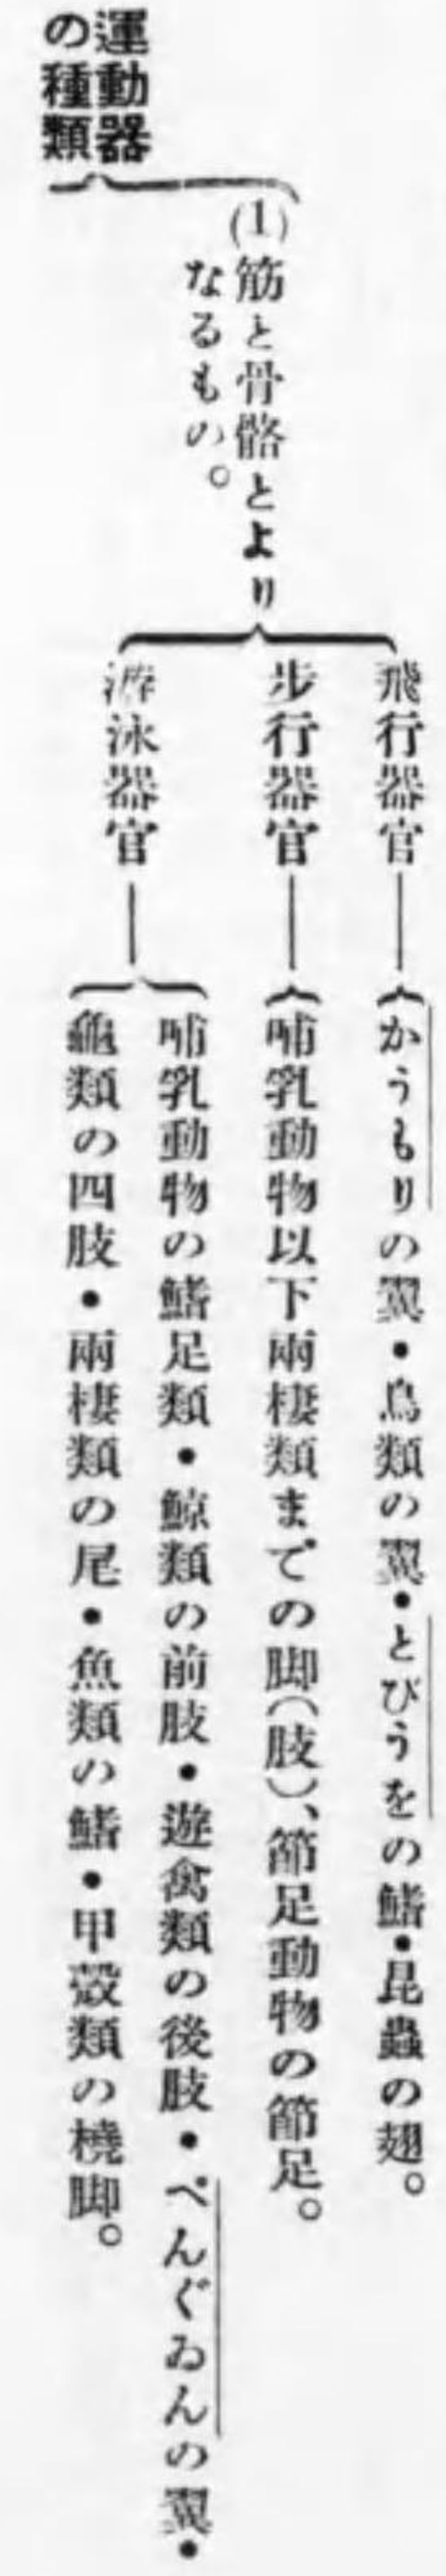 運動器
の種類
(1)筋と骨骼とより
なるもの。
飛行器官
かうもりの翼・鳥類の翼・とびうをの鰭・昆蟲の翅。
步行器官
哺乳動物以下兩棲類までの脚(肢)、節足動物の節足。
游泳器官
哺乳動物の鰭足類・鯨類の前肢・遊禽類の後肢・ぺんぐゐんの翼・
龜類の四肢・兩棲類の尾・魚類の鰭・甲殼類の橈脚。